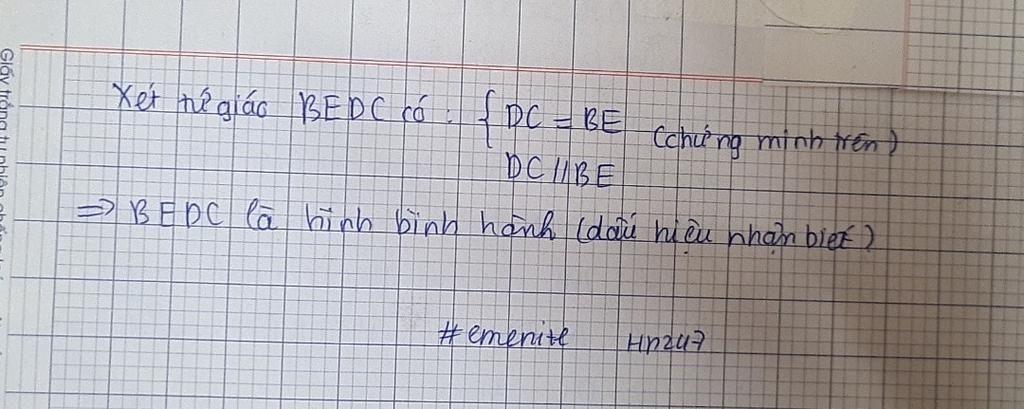 Xét tứ giác BEDC có : { DC = BE (chứng minh trên)
DC // BE
=> BEDC là hình bình hành (dấu hiệu nhận biết)
#emenite
Giấy trắng tự nhiên